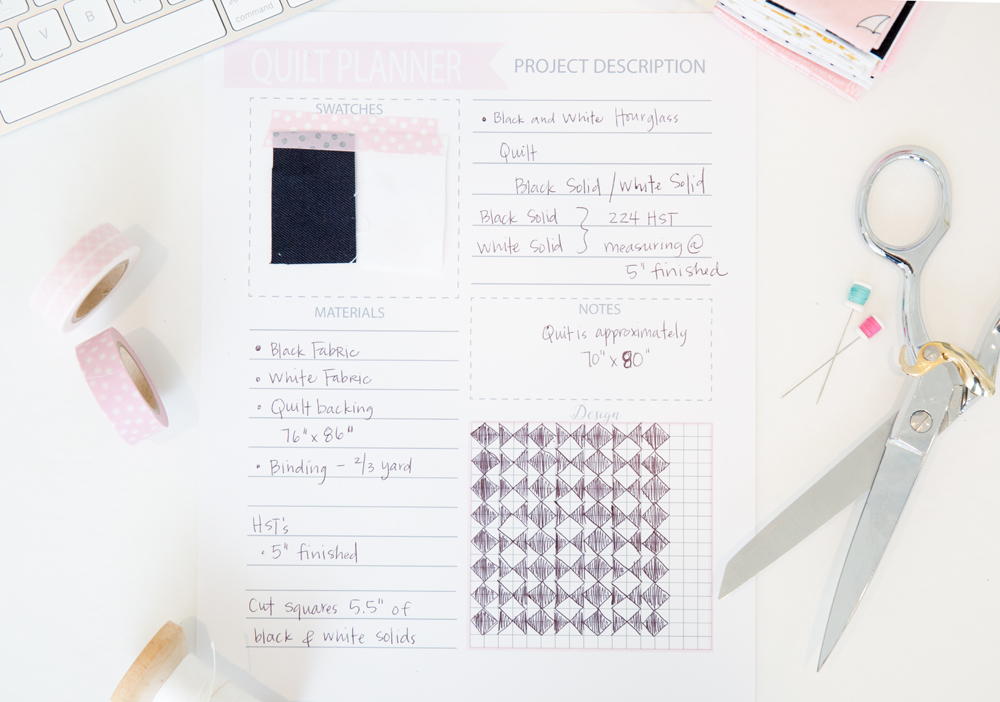 V
B
N
command
QUILT PLANNER
PROJECT DESCRIPTION
SWATCHES
• Black and White Hourglass
Quilt
Black Solid / White Solid
Black Solid } 224 HST
White Solid } measuring @
5" finished
MATERIALS
• Black Fabric
• White Fabric
• Quilt backing
76" x 86"
• Binding - 2/3 yard
HST's
• 5" finished
Cut squares 5.5" of
black & white solids
NOTES
Quit is approximately
70" x 80"
Design